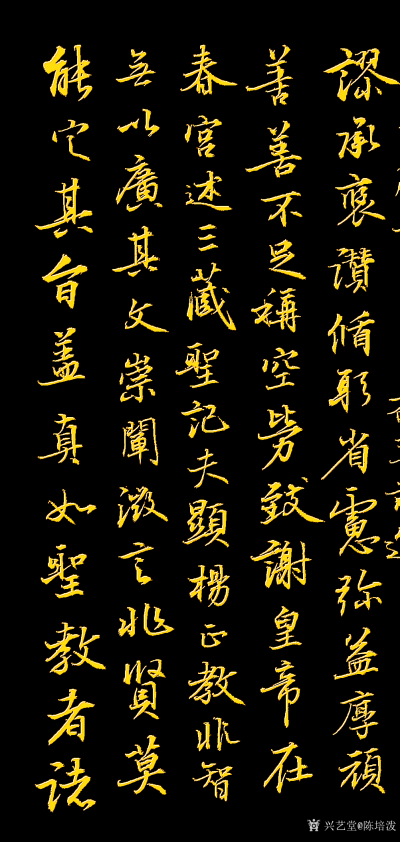 謬承褒讚循躬省慮弥益厚顔
善善不足稱空勞致謝皇帝在
春宮述三藏聖記夫顯揚正教非智
無以廣其文崇闡微言非賢莫
能定其旨蓋真如聖教者諸
兴艺堂@陈培泼